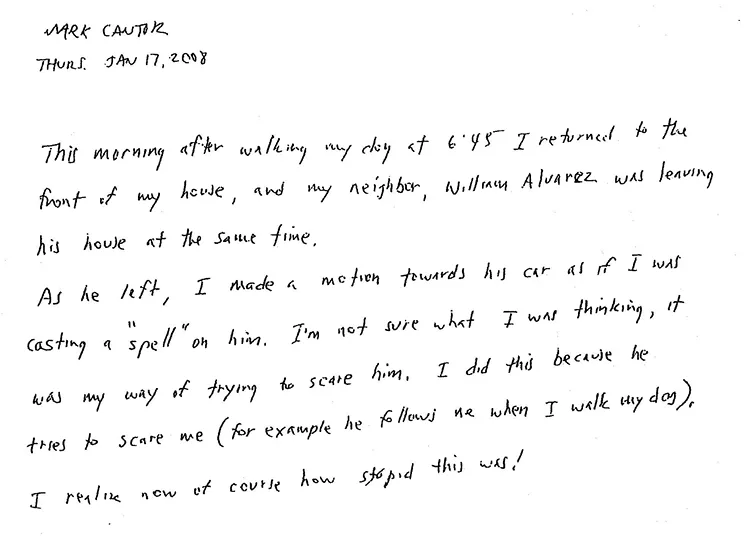 MARK CANTOR
THURS. JAN 17, 2008
This morning after walking my dog at 6:45 I returned to the
front of my house, and my neighbor, William Alvarez was leaving
his house at the same time.
As he left, I made a motion towards his car as if I was
casting a "spell" on him. I'm not sure what I was thinking, it
was my way of trying to scare him. I did this because he
tries to scare me (for example he follows me when I walk my dog).
I realize now of course how stupid this was!